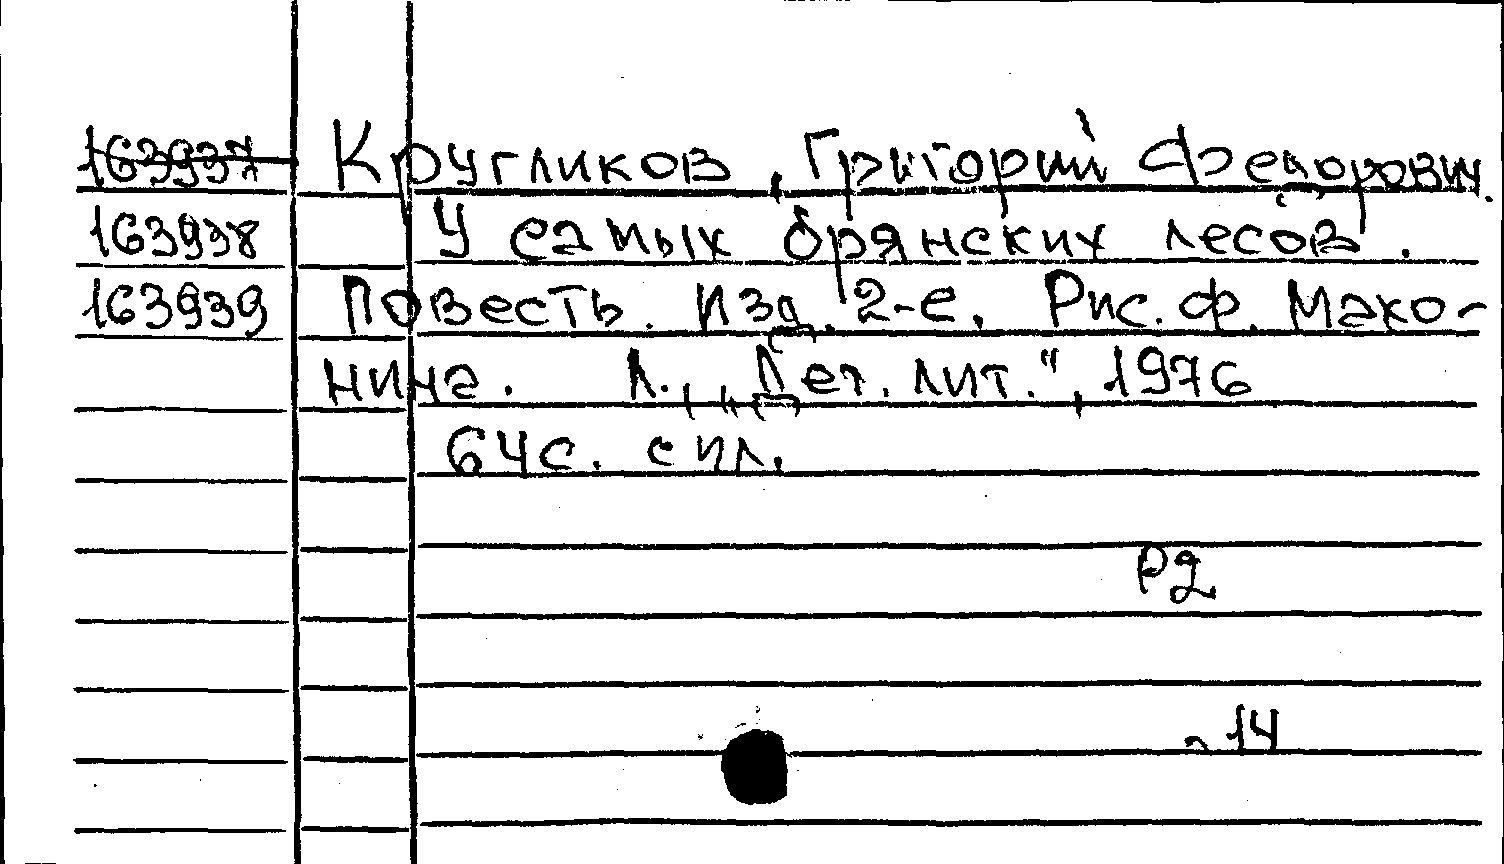 163937 Кругликов, Григорий Федорович.
163938 У самых брянских лесов.
163939 Повесть. Изд. 2-е. Рис. Ф. Махо-
нина. Л., „Дет. лит.", 1976
64с. с ил.
Р2
14